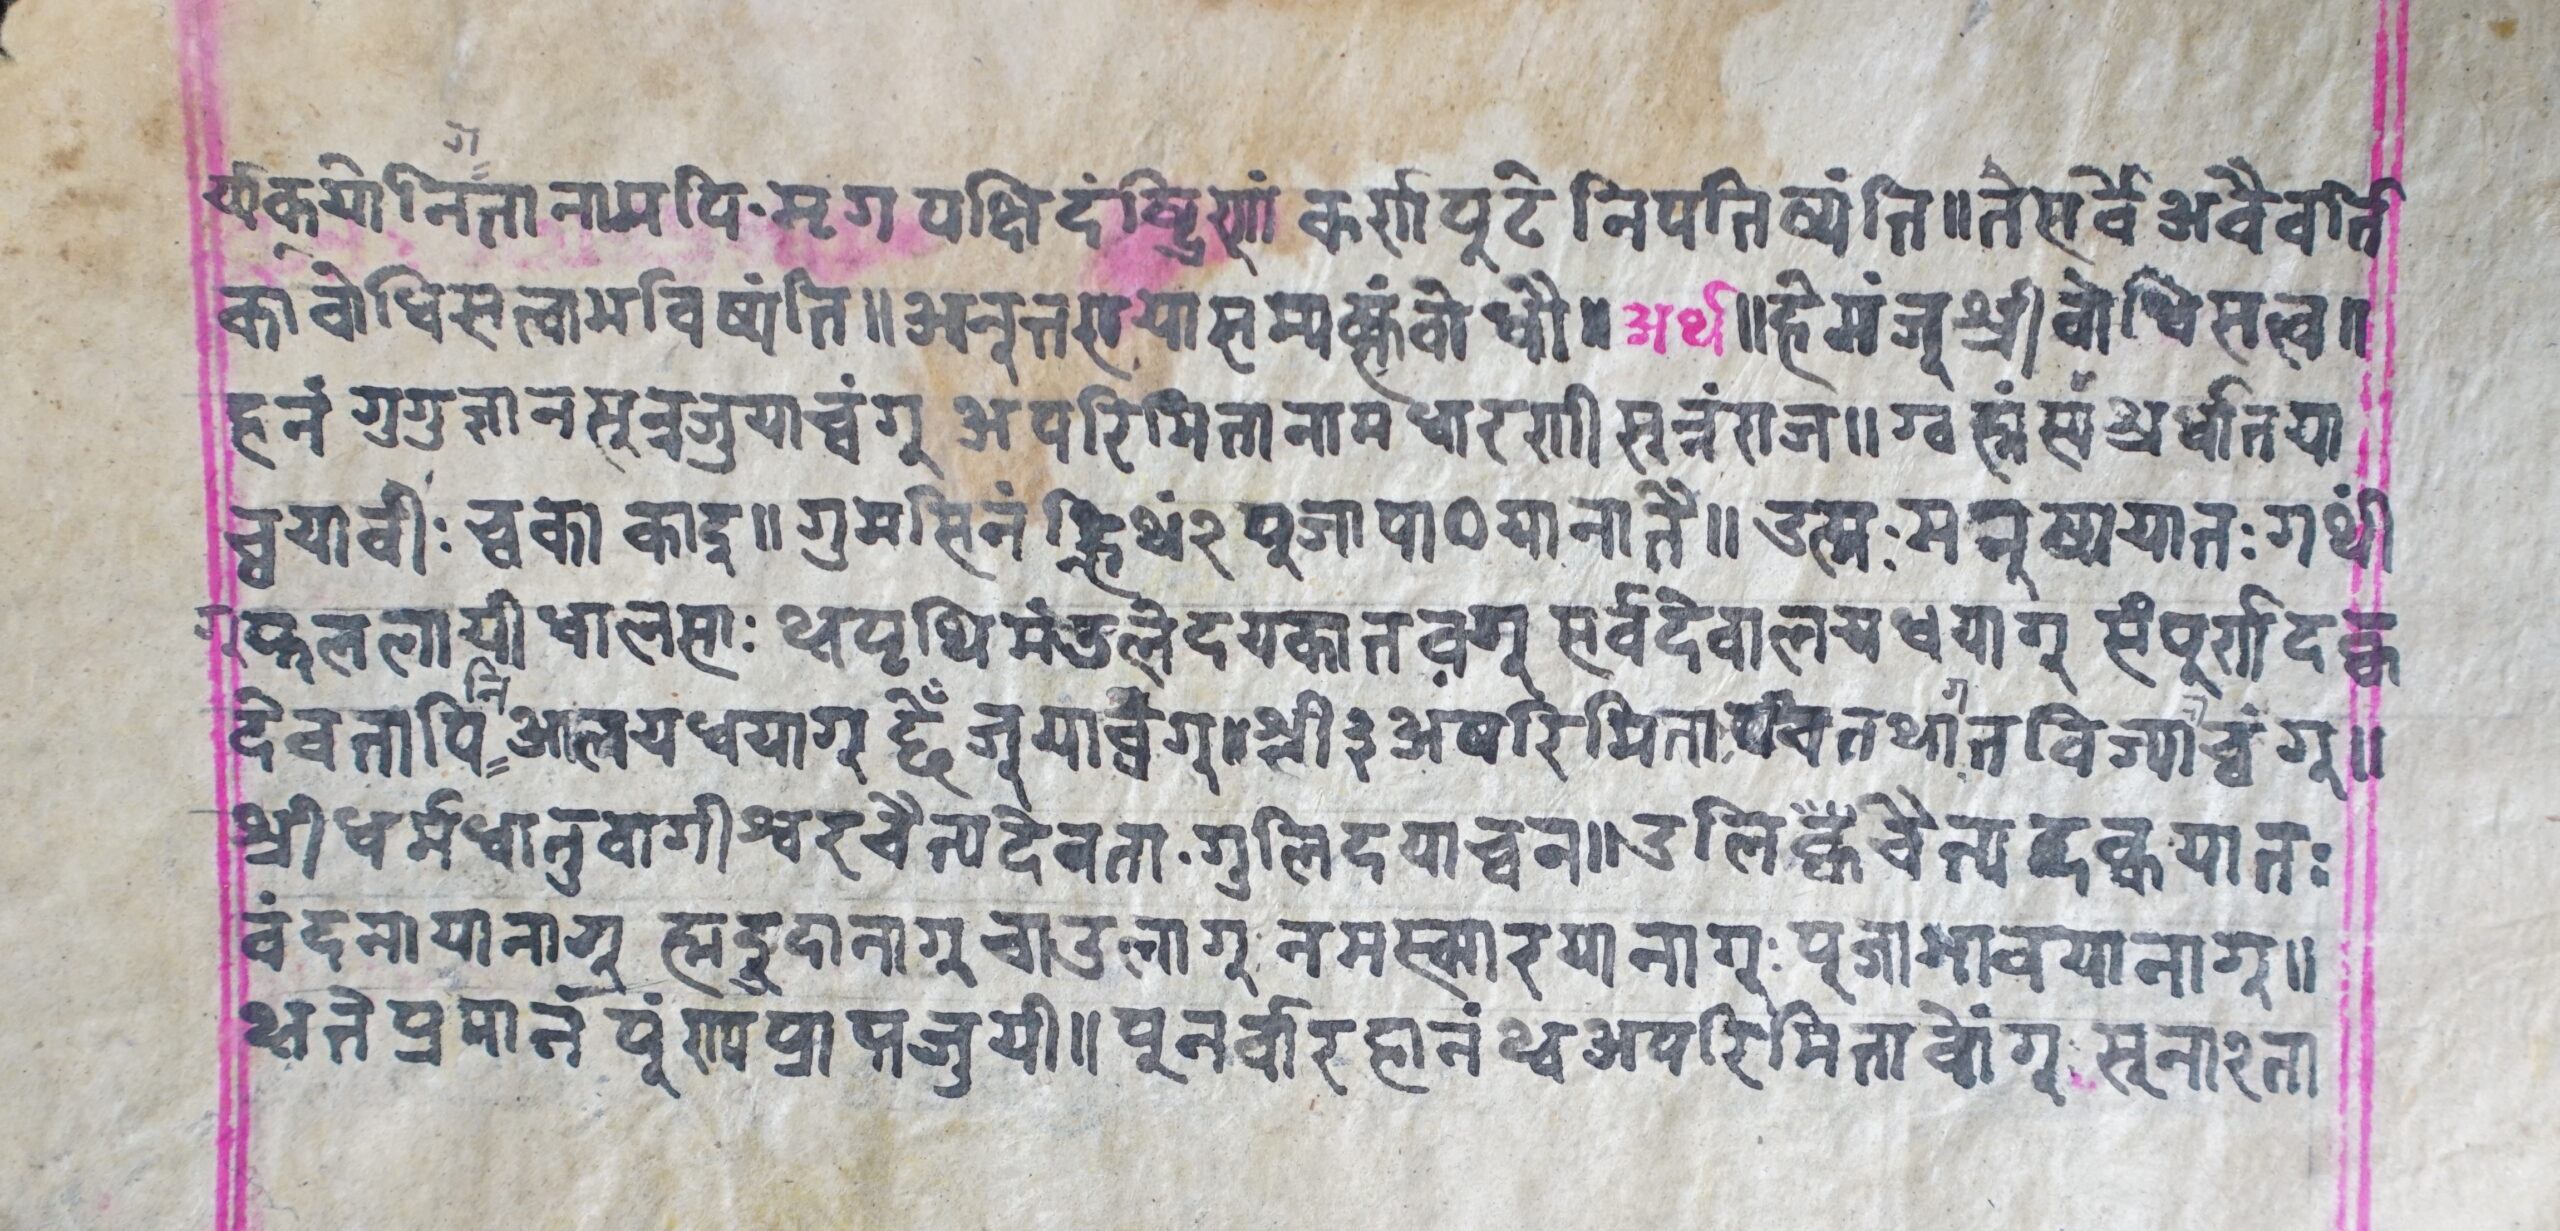 र्यकयोनिगतानामपि.मृगपक्षिदंष्ट्रिणां कर्णपुटे निपतिष्यंति॥ते सर्वे अवैवर्ति
का वोधिसत्वा भविष्यंति॥अनूत्तरायां सम्यक्संवोधौ॥अर्थ॥हे मंजूश्री वोधिसत्व॥
हनं गुगु ज्ञानसूत्रजुयाच्वंगू अपरिमितानामधारणी सूत्रंराज॥ग्वह्मंस्यं अर्थातया
च्वयावीः च्वका कादु॥गुमसिनं थं२ पूजा पाठ यानातै॥उह्म:मनूष्ययात:गथीं
गूफललायी धालसाः थ्वपृथिमंडले दयकातवगू सर्वदेवालयधयागू संपूर्णदक्व
देवतापिनि आलयधयागू छेँ जूयाच्वंगू॥श्री३अपरिमिता तथागत विज्याच्वंगू॥
श्रीधर्मधातुवागीश्वरचैत्यदेवता.गुलि दयाच्वन॥उलि चैत्य दक्वयातः
वंदनायानागू ह्मदुदानागू चाउलागू नमस्कारयानागू: पूजाभावयानागू॥
थ्वते प्रमानं पूंण्यप्राप्तजुयी॥पूनर्वारहानं थ्व अपरिमिता धागू सूना२ता